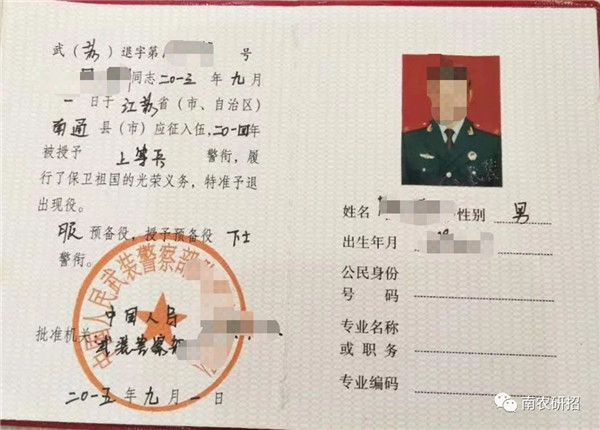 武（苏）退字第 号
同志二〇一三年九月
一日于江苏省（市、自治区）
南通县（市）应征入伍，二〇一四年
被授予 上等兵 警衔，履
行了保卫祖国的光荣义务，特准予退
出现役。
服预备役，授予预备役 下士
警衔。
中国人民武装警察部
中国人民
批准机关：武装警察部
二〇一五年九月一日
姓名 性别 男
出生年月
公民身份
号码
专业名称
或职务
专业编码
南农研招